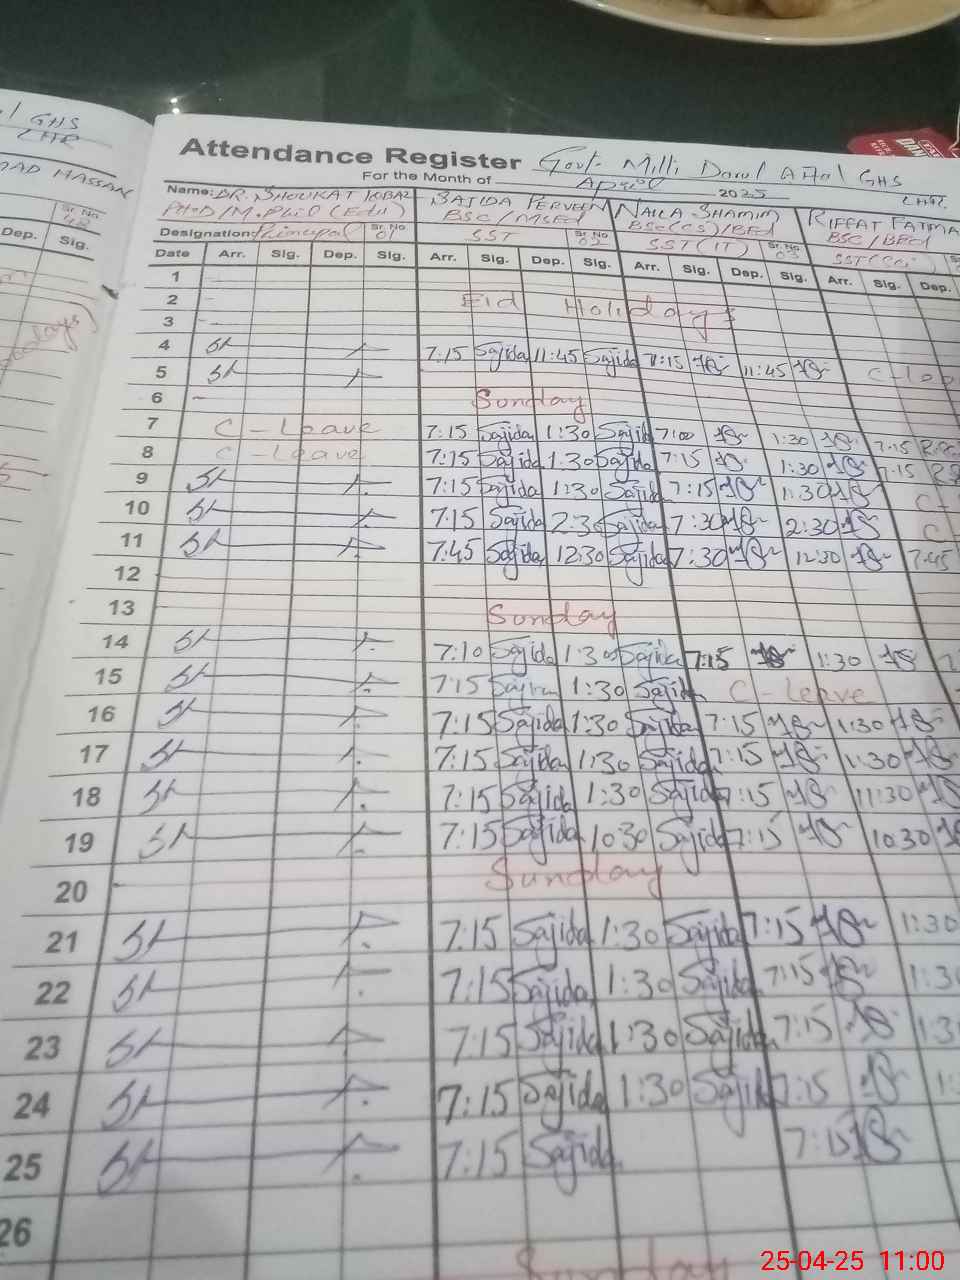 GHS
LHR
HASSAN
Sr. No
Dep. Sig.
Attendance Register Govt. Milli Darul Atfal GHS
For the Month of April 2025 LHR.
Name: DR. SHOUKAT IQBAL SAJIDA PERVEEN NAILA SHAMIM RIFFAT FATMA
PH.D/M.Phil (Edu) BSC/MSEd BSc(CS)/BEd BSC/BEd
Designation Principal Sr. No 01 SST Sr. No 02 SST(IT) Sr. No 03 SST(Sci)
Date Arr. Sig. Dep. Sig. Arr. Sig. Dep. Sig. Arr. Sig. Dep. Sig. Arr. Sig. Dep.
1
2 Eid Holidays
3
4 7:15 Sajida 11:45 Sajida 7:15 11:45
5
6 Sunday
7 C-Leave 7:15 Sajida 1:30 Sajida 7:00 1:30 7:15
8 C-Leave 7:15 Sajida 1:30 Sajida 7:15 1:30 7:15
9 7:15 Sajida 1:30 Sajida 7:15 1:30
10 7:15 Sajida 2:30 Sajida 7:30 2:30
11 7:45 Sajida 12:30 Sajida 7:30 12:30 7:45
12
13 Sunday
14 7:10 Sajida 1:30 Sajida 7:15 1:30
15 7:15 Sajida 1:30 Sajida C-leave
16 7:15 Sajida 1:30 Sajida 7:15 1:30
17 7:15 Sajida 1:30 Sajida 7:15 1:30
18 7:15 Sajida 1:30 Sajida 7:15 11:30
19 7:15 Sajida 10:30 Sajida 7:15 10:30
20 Sunday
21 7:15 Sajida 1:30 Sajida 7:15 1:30
22 7:15 Sajida 1:30 Sajida 7:15
23 7:15 Sajida 1:30 Sajida 7:15
24 7:15 Sajida 1:30 Sajida 7:15
25 7:15 Sajida 7:15
26
Sunday
25-04-25 11:00